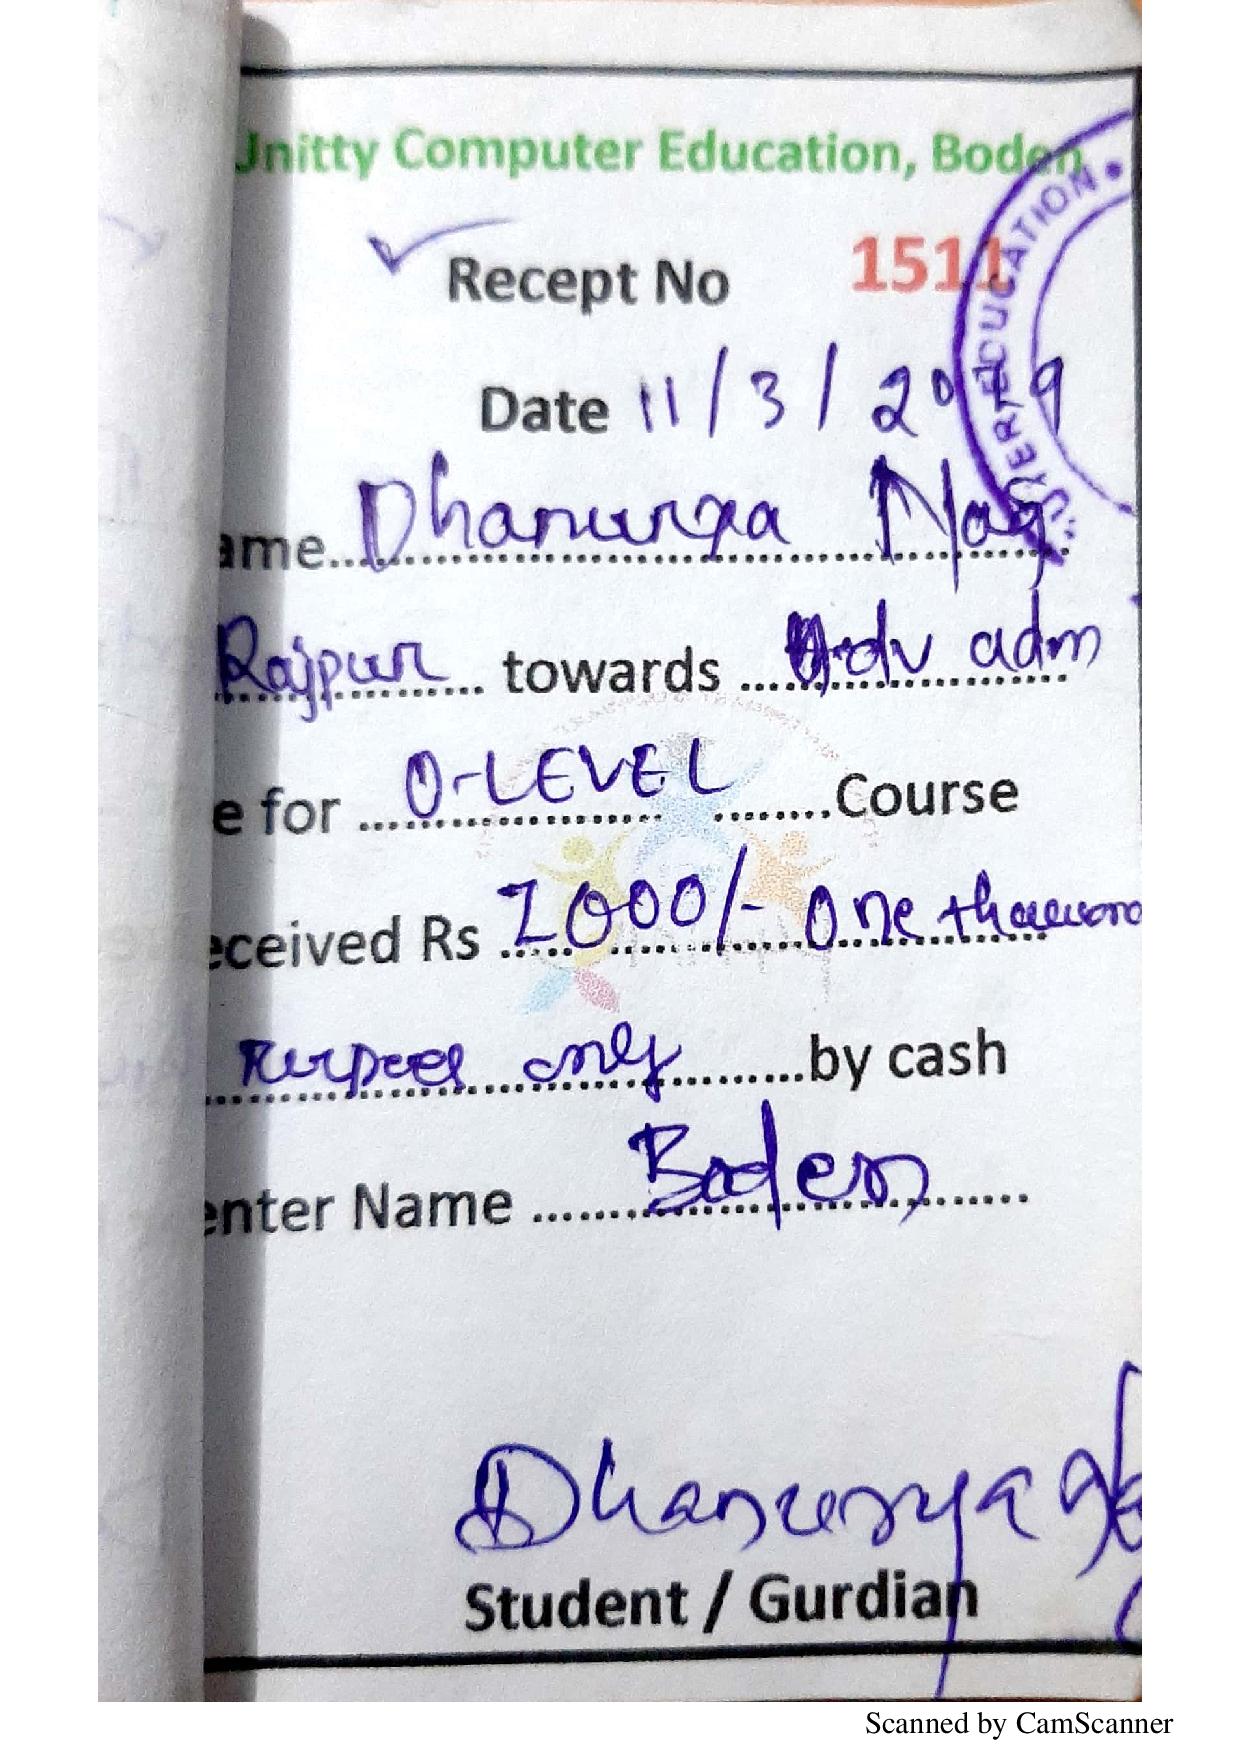 Unitty Computer Education, Boden
Recept No 1511
Date 11/3/2019
ame Dhanurya Nag
Rajpur towards Adv adm
e for O-LEVEL Course
eceived Rs 1000/- One thousand
Rupees only by cash
enter Name Boden
Dhanurya
Student / Gurdian
EDUCATION
Scanned by CamScanner